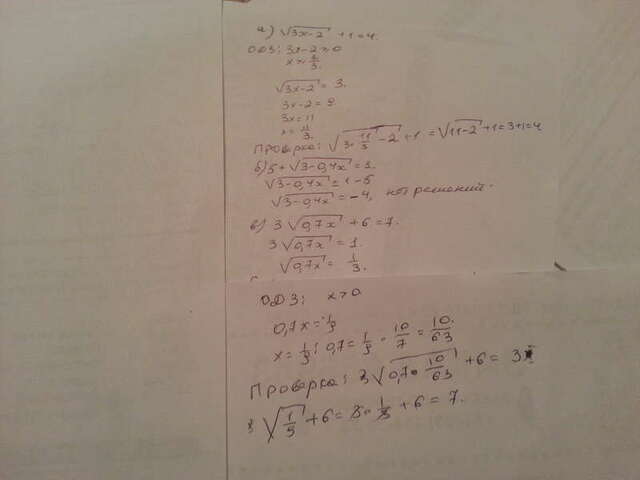 а) √3x-2 + 1 = 4
ОДЗ: 3x-2 ≥ 0
x ≥ 2/3.
√3x-2 = 3.
3x-2 = 9
3x = 11
x = 11/3.
Проверка: √3·11/3-2 + 1 = √11-2 + 1 = 3+1 = 4
б) 5 + √3-0,4x = 1.
√3-0,4x = 1-5
√3-0,4x = -4, нет решений.
в) 3√0,7x + 6 = 7.
3√0,7x = 1.
√0,7x = 1/3.
ОДЗ: x > 0
0,7x = 1/9
x = 1/9 : 0,7 = 1/9 · 10/7 = 10/63.
Проверка: 3√0,7·10/63 + 6 = 3
√1/9 + 6 = 3·1/3 + 6 = 7.